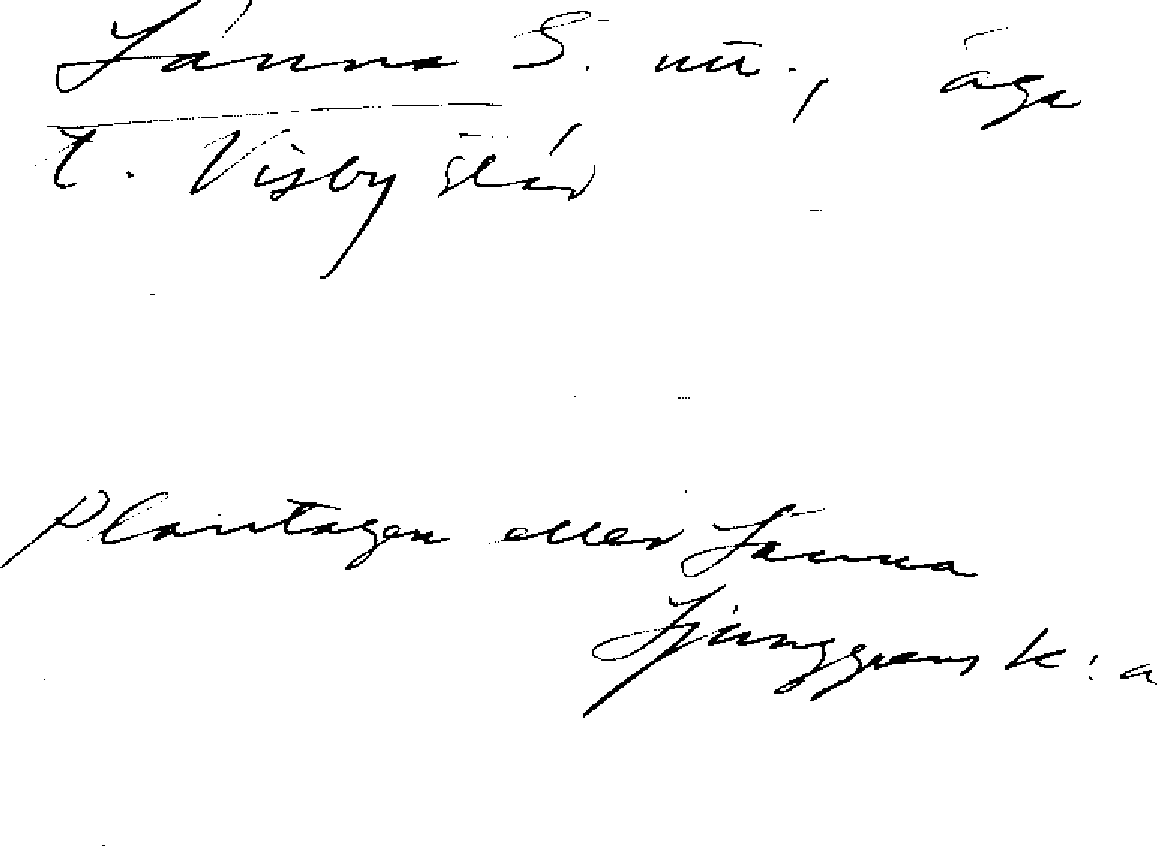 Länna S. nu., äga
t. Visby stad
Plantagen eller Länna
Ljunggrens k:a